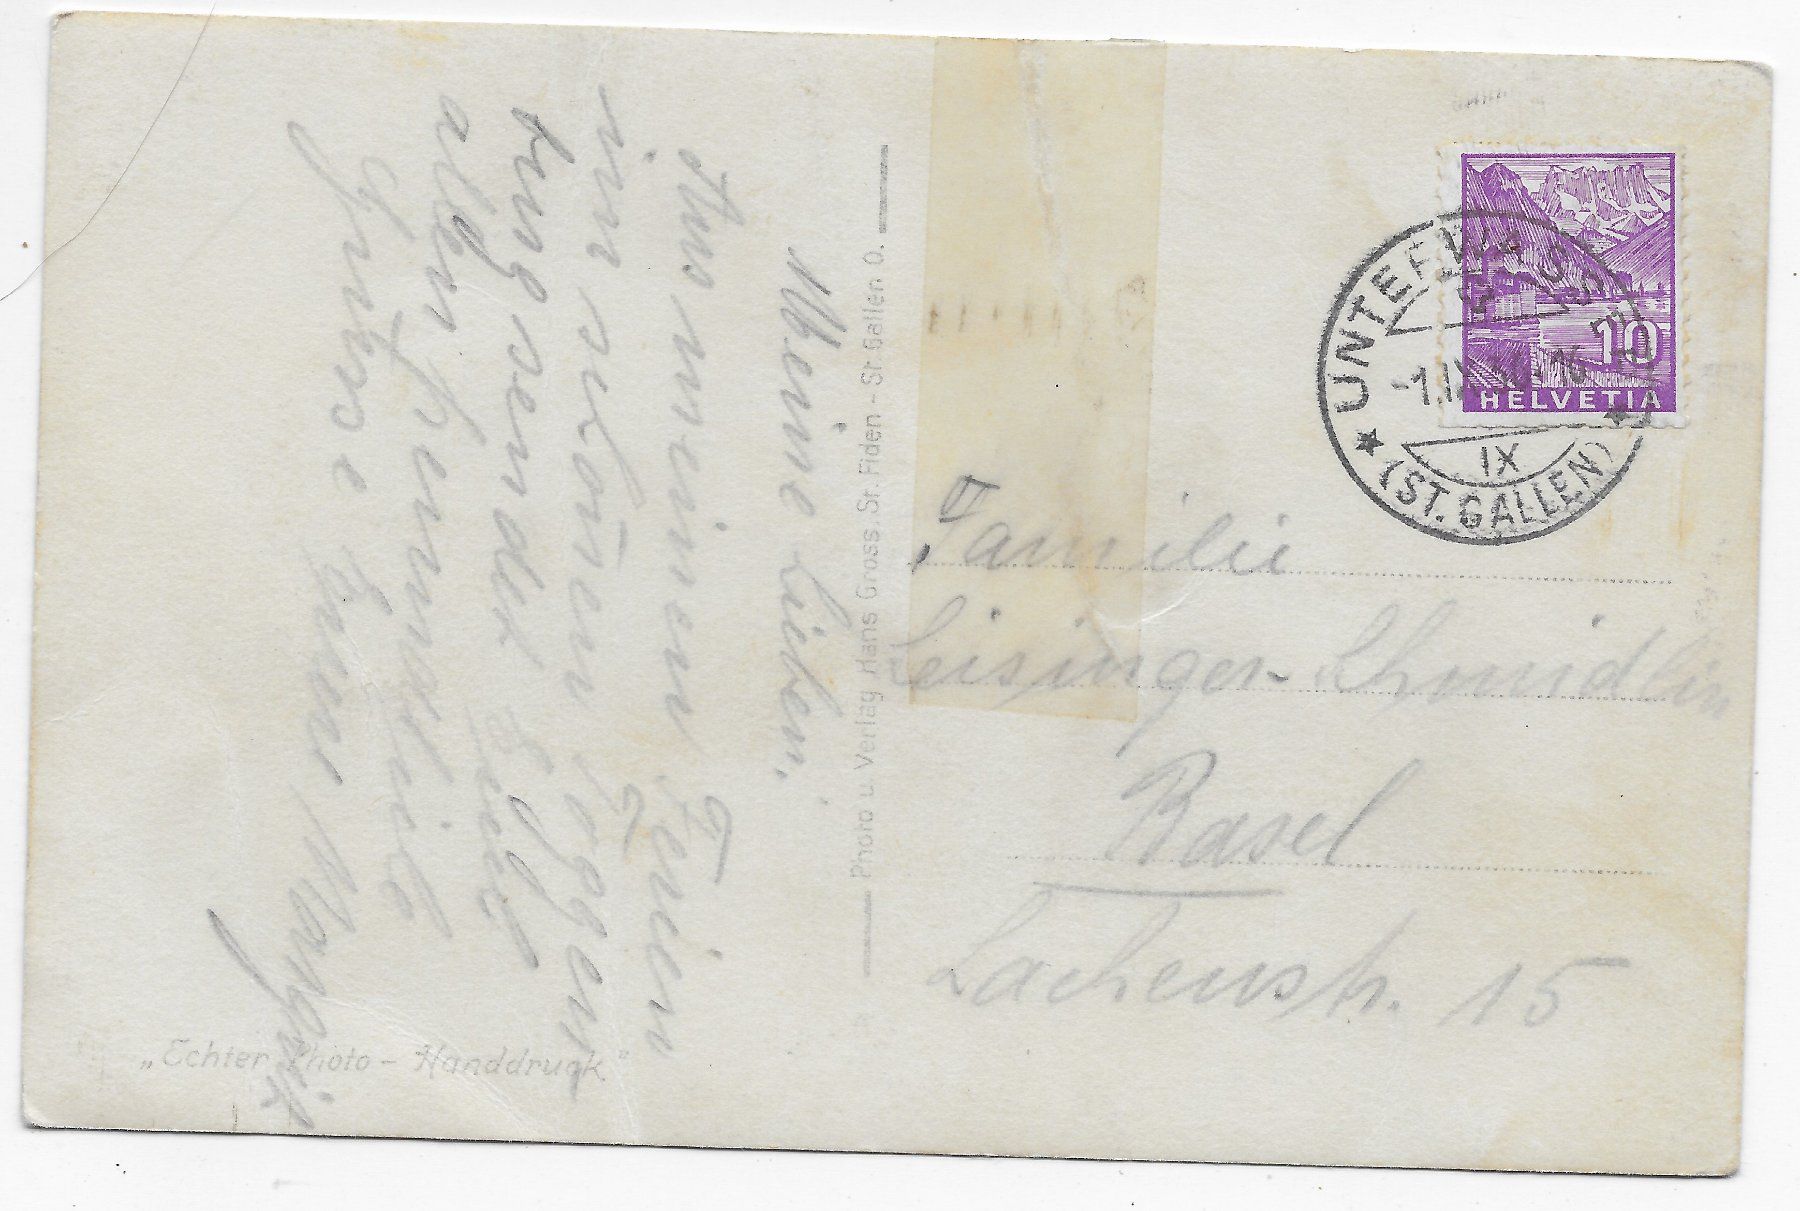 Meine Lieben,
Aus meinen Ferien
im schönen Toggen-
burg sendet Euch
allen herzliche
Grüsse Euer
Photo u. Verlag Hans Gross, St. Fiden - St. Gallen O.
„Echter Photo - Handdruck"
HELVETIA
10
UNTERWASSER
IX
(ST. GALLEN)
Familie
Leisinger-Schmidlin
Basel
Lachenstr. 15